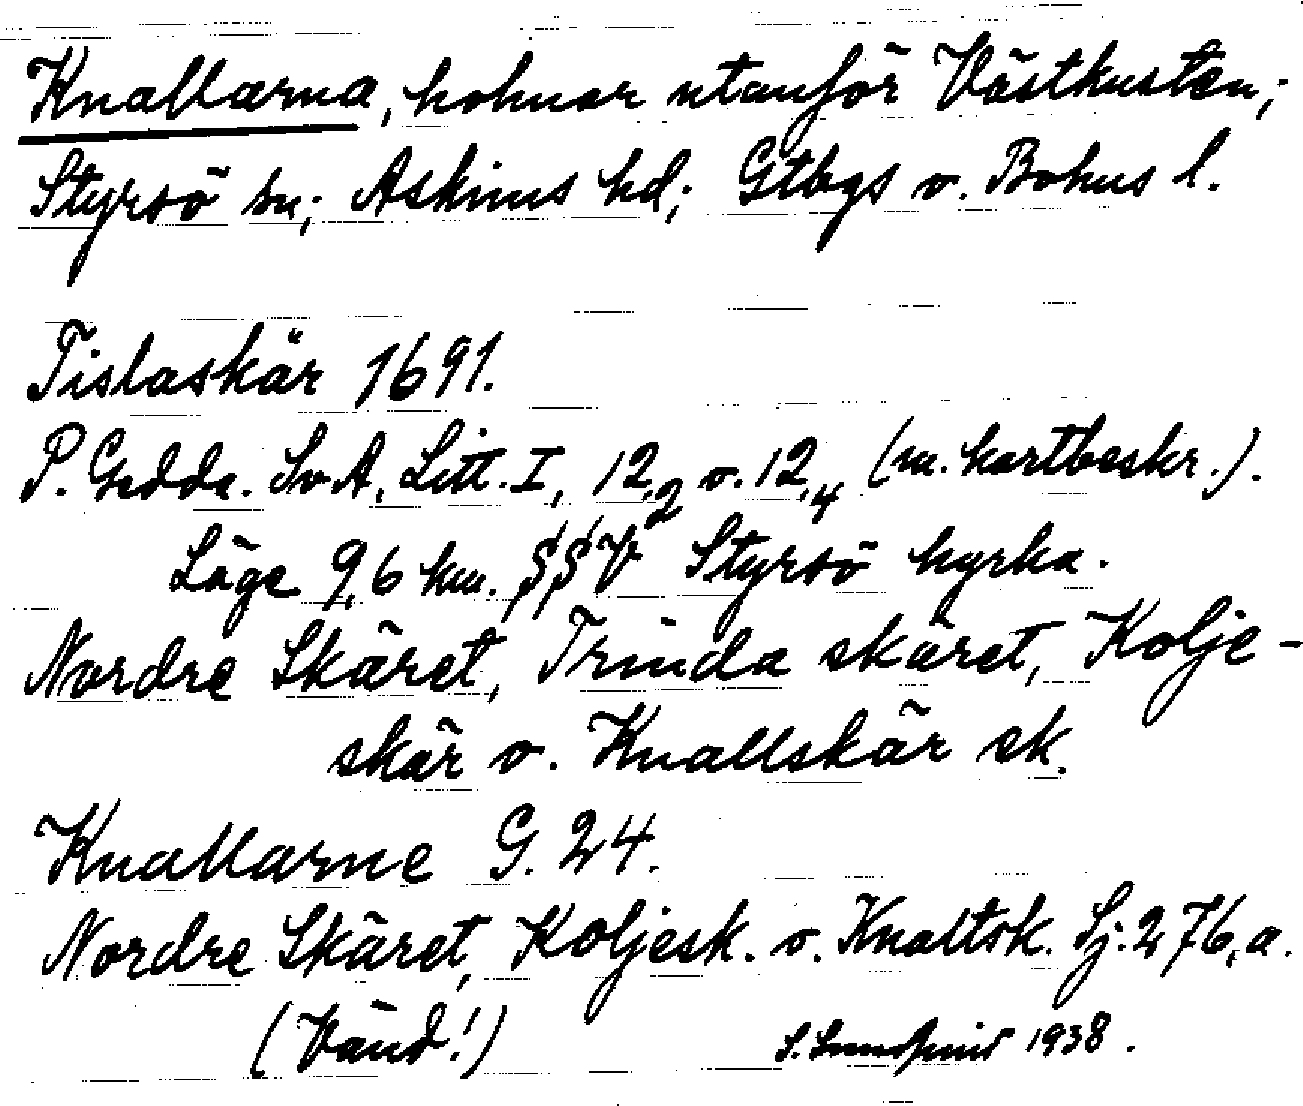 Knallarna, holmar utanför Västkusten;
Styrsö sn; Askims hd; Gtbgs o. Bohus l.
Tislaskär 1691.
P. Gedda. Sv. A, Litt. I, 12,2 o. 12,4 (m. kartbeskr.).
Läge 9,6 km. §§V Styrsö kyrka.
Nordre Skäret, Trinda skäret, Kolje-
skär o. Knallskär sk.
Knallarne G. 24.
Nordre Skäret, Koljesk. o. Knaltsk. Sj. 276, a.
(Vänd!)
S. 1938.